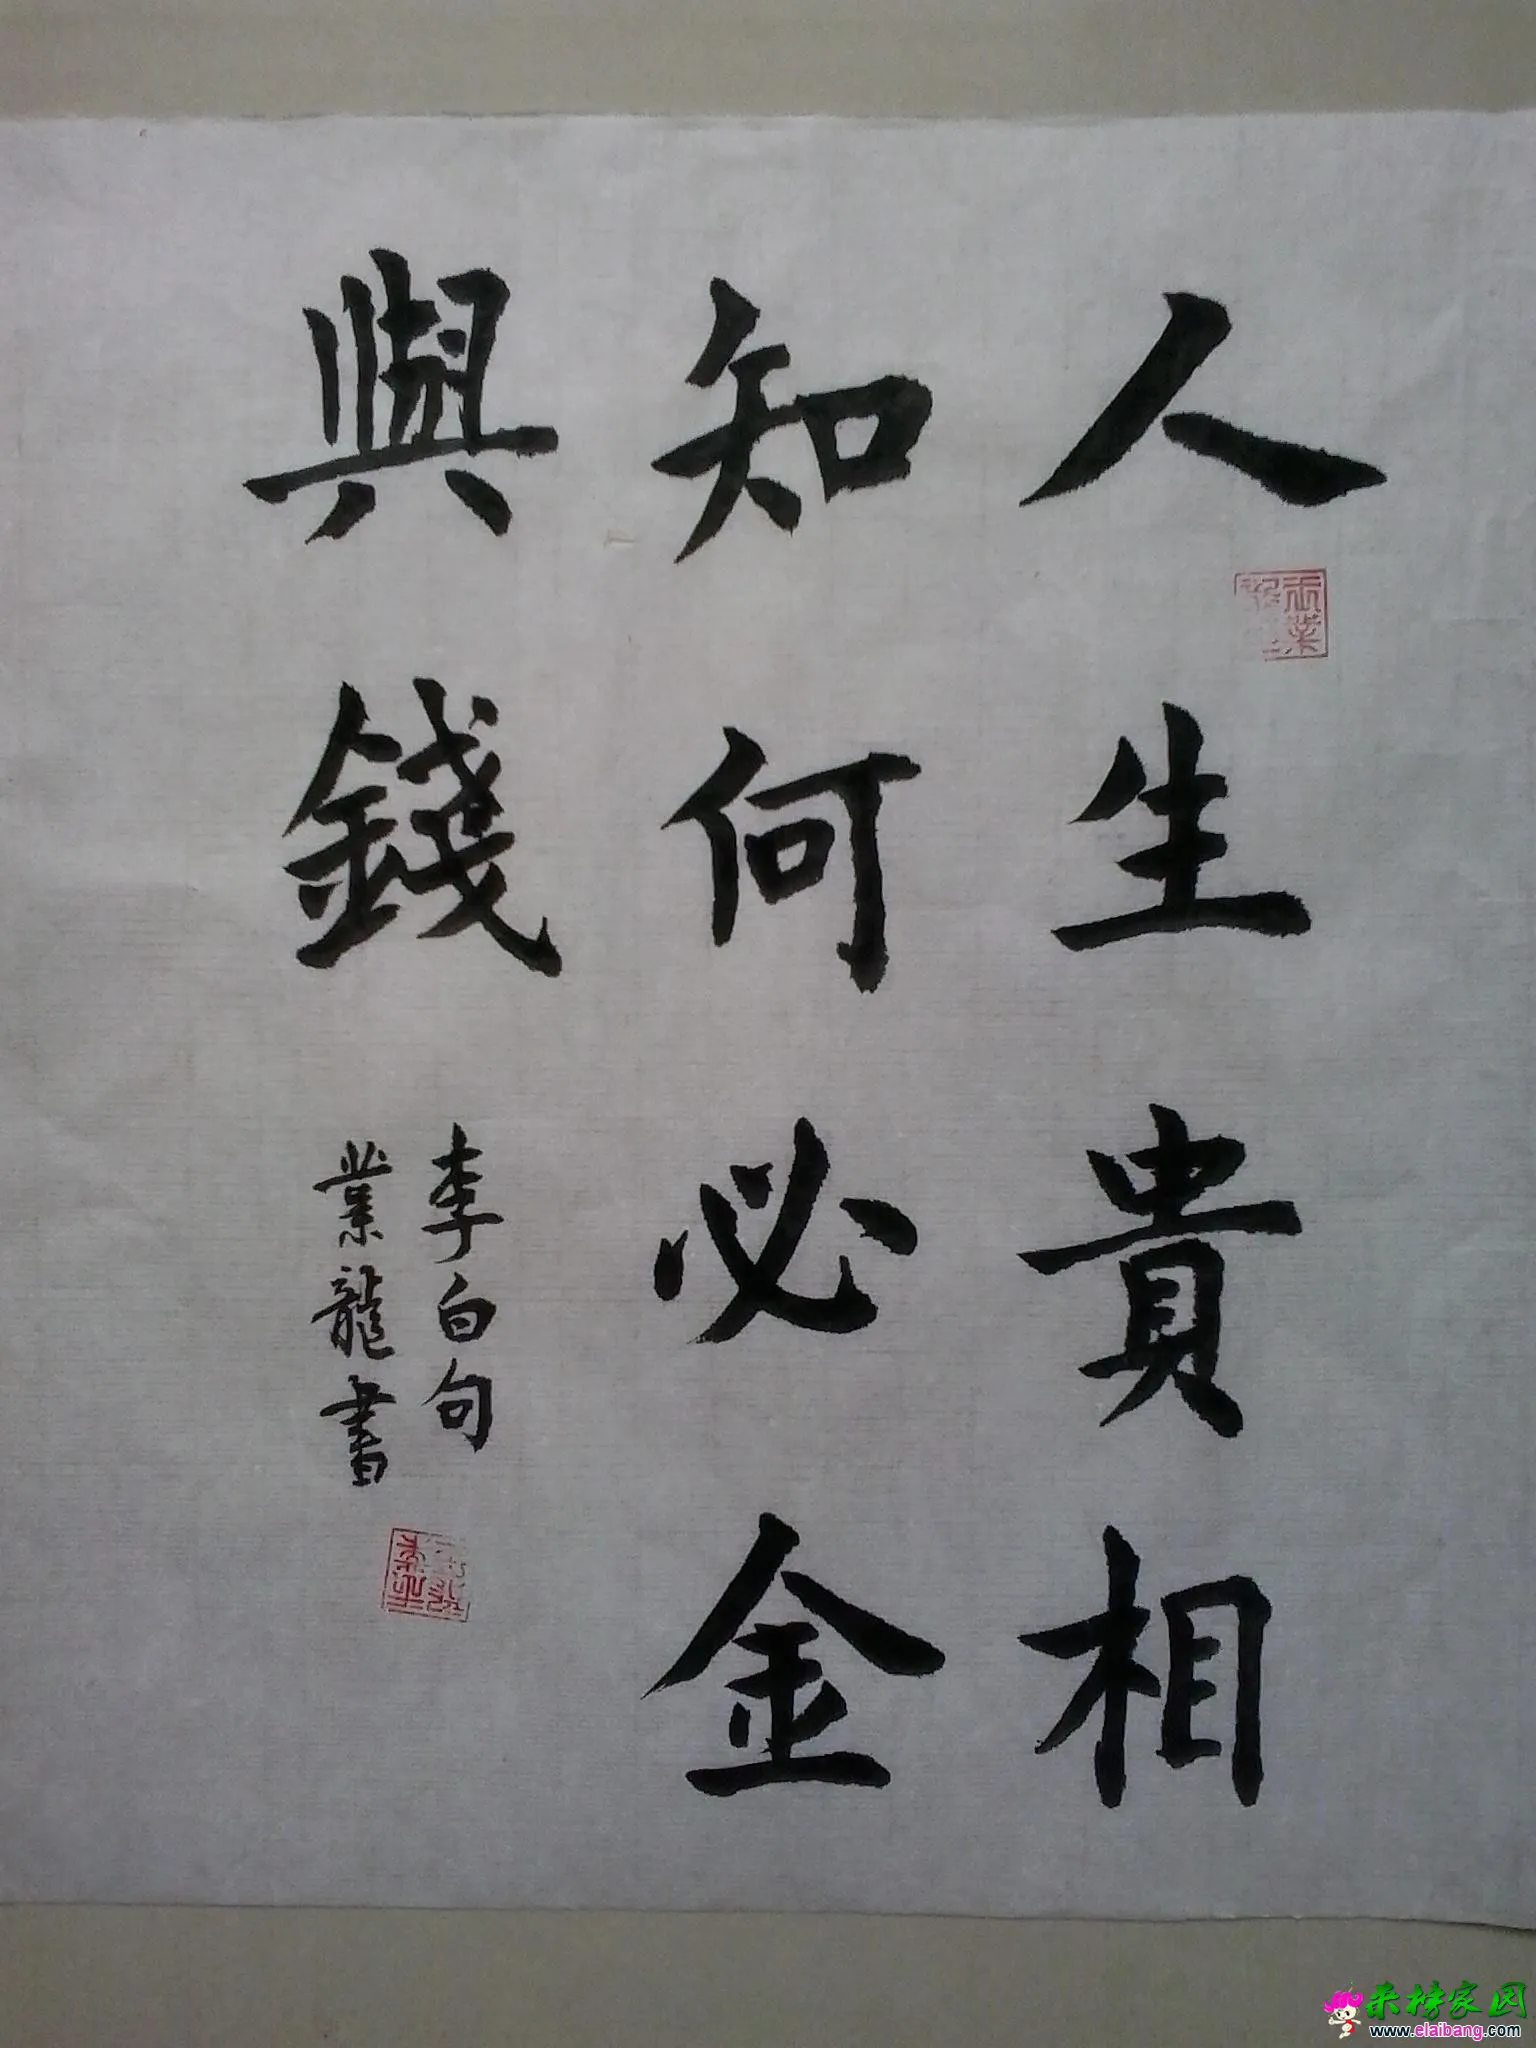 人生貴相
知何必金
與錢
李白句
業龍書
来榜家园
www.elaibang.com